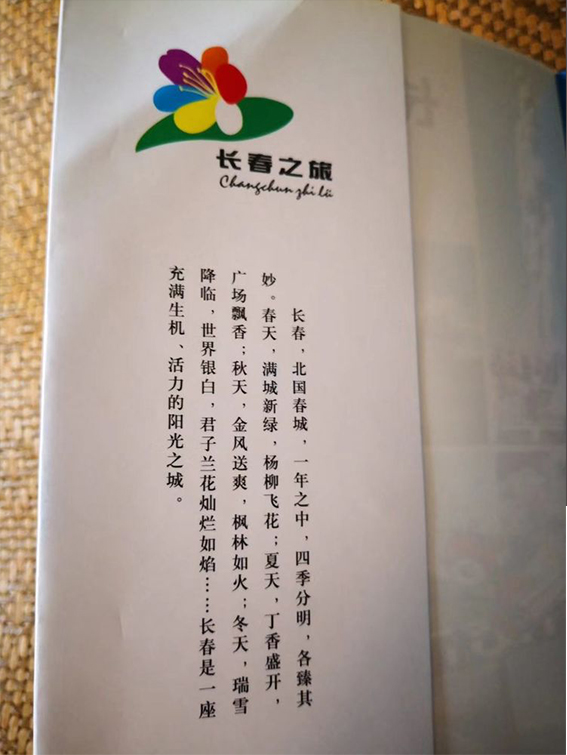 长春之旅
Changchun zhi lü
长春，北国春城，一年之中，四季分明，各臻其
妙。春天，满城新绿，杨柳飞花；夏天，丁香盛开，
广场飘香；秋天，金风送爽，枫林如火；冬天，瑞雪
降临，世界银白，君子兰花灿烂如焰……长春是一座
充满生机、活力的阳光之城。